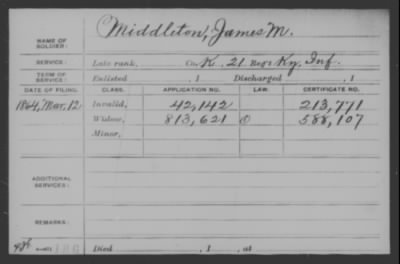 NAME OF SOLDIER: Middleton, James M.
SERVICE: Late rank, Co. K, 21 Reg't Ky. Inf.
TERM OF SERVICE: Enlisted , 1 Discharged , 1
DATE OF FILING. CLASS. APPLICATION NO. LAW. CERTIFICATE NO.
1864, Mar, 12 Invalid, 42,142 213,771
Widow, 813,621 588,107
Minor,
ADDITIONAL SERVICES:
REMARKS:
Died , 1 , at